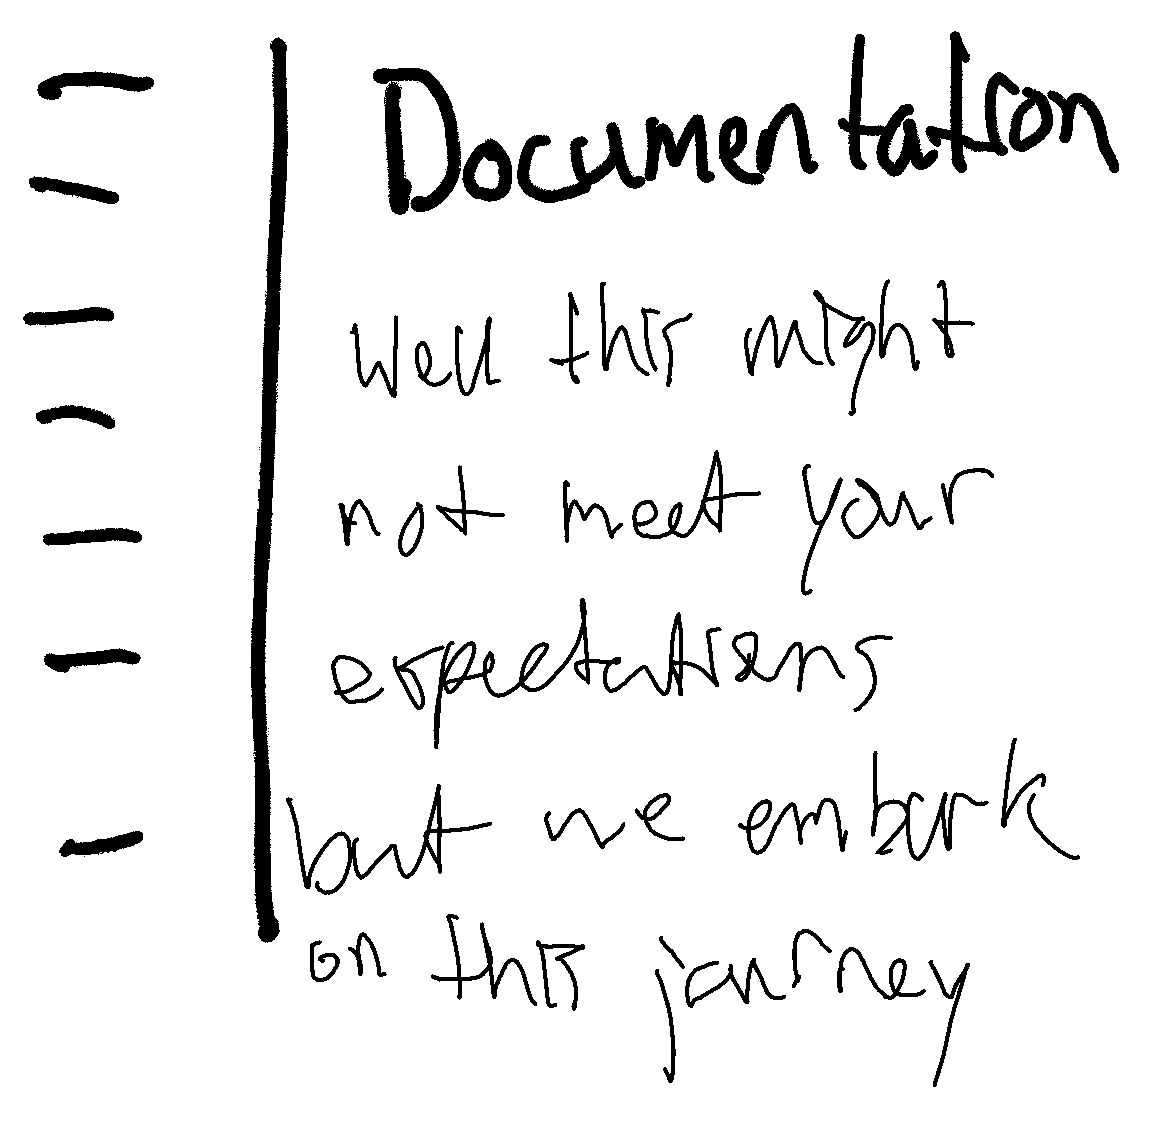 Documentation
Well this might
not meet your
expectations
but we embark
on this journey